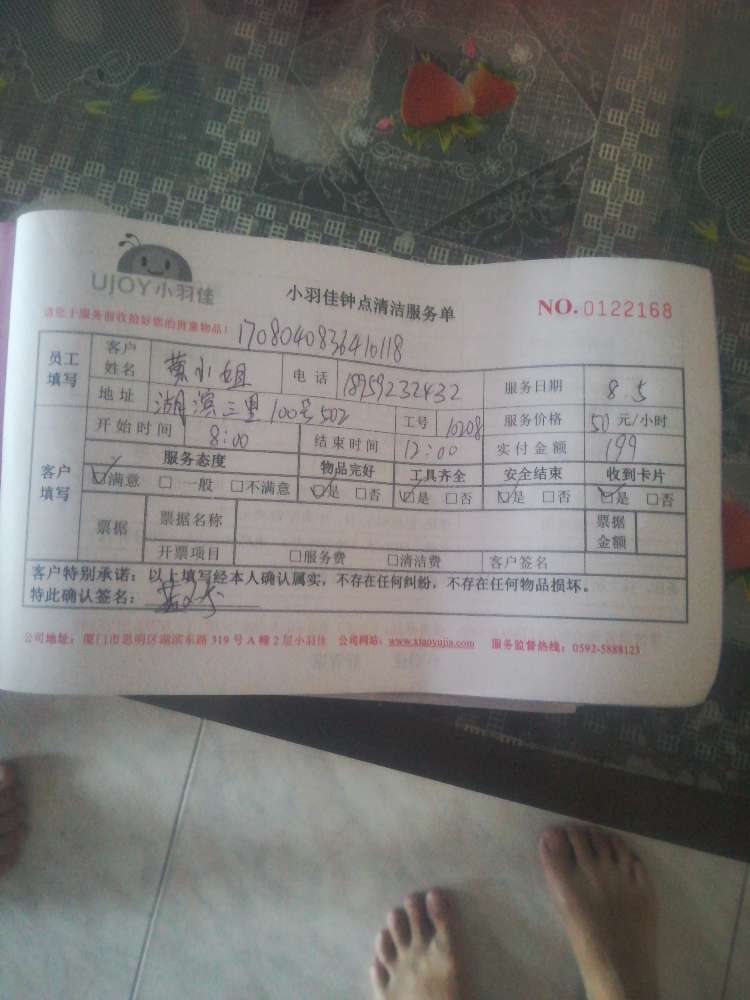 UJOY小羽佳
小羽佳钟点清洁服务单
NO.0122168
请您于服务前收拾好您的贵重物品!
1708040836410118
员工填写 客户姓名 黄小姐 电话 18959232432 服务日期 8.5
地址 湖滨三里100号502 工号 10208 服务价格 50元/小时
客户填写 开始时间 8:00 结束时间 12:00 实付金额 199
服务态度 物品完好 工具齐全 安全结束 收到卡片
☑满意 □一般 □不满意 ☑是 □否 ☑是 □否 ☑是 □否 ☑是 □否
票据 票据名称 票据金额
开票项目 □服务费 □清洁费 客户签名
客户特别承诺:以上填写经本人确认属实,不存在任何纠纷,不存在任何物品损坏。
特此确认签名:
公司地址:厦门市思明区湖滨东路319号A幢2层小羽佳 公司网站:www.xiaoyujia.com 服务监督热线:0592-5888123